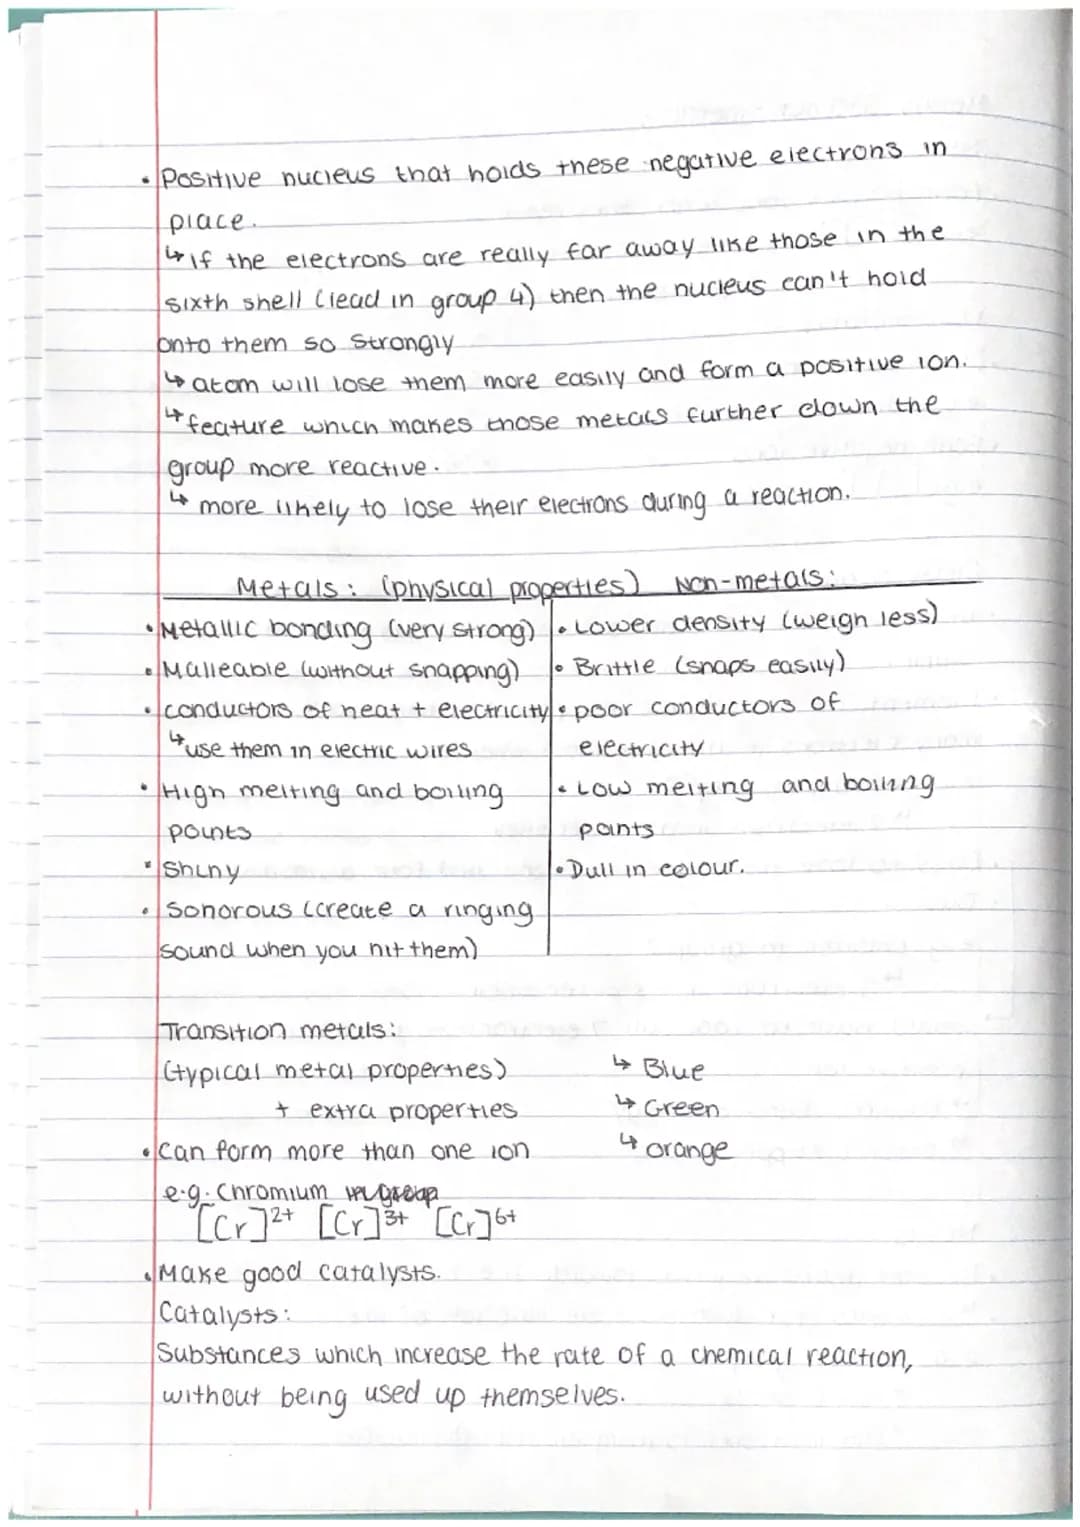 • Positive nucleus that holds these negative electrons in
place.
↳ if the electrons are really far away like those in the
sixth shell (lead in group 4) then the nucleus can't hold
onto them so strongly
↳ atom will lose them more easily and form a positive ion.
↳ feature which makes those metals further down the
group more reactive.
↳ more likely to lose their electrons during a reaction.
Metals: (physical properties) Non-metals:
• Metallic bonding (very strong)
• Malleable (without snapping)
• conductors of heat + electricity
↳ use them in electric wires
• High melting and boiling
points
• Shiny
• Sonorous (create a ringing
sound when you hit them)
• Lower density (weigh less)
• Brittle (snaps easily)
• poor conductors of
electricity
• Low melting and boiling
points
• Dull in colour.
Transition metals:
(typical metal properties)
+ extra properties
• Can form more than one ion
e.g. Chromium
[Cr]²⁺ [Cr]³⁺ [Cr]⁶⁺
↳ Blue
↳ Green
↳ orange
• Make good catalysts.
Catalysts:
Substances which increase the rate of a chemical reaction,
without being used up themselves.